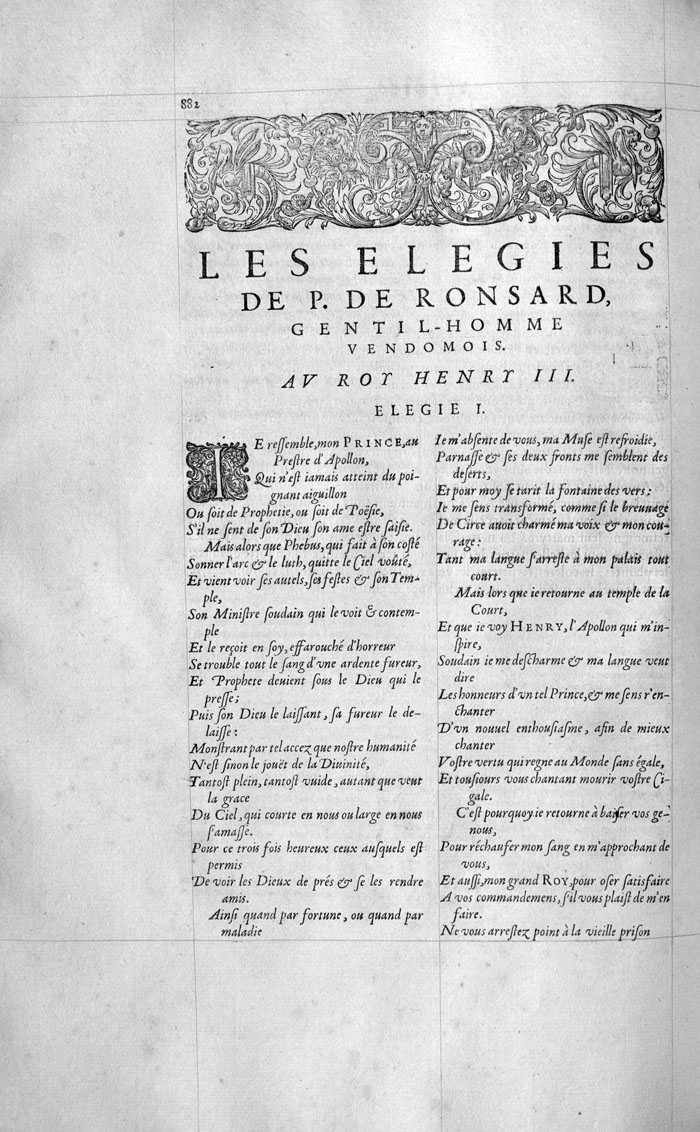 882
LES ELEGIES
DE P. DE RONSARD,
GENTIL-HOMME
VENDOMOIS.
AV ROY HENRY III.
ELEGIE I.
IE reſſemble, mon PRINCE, au
Preſtre d'Apollon,
Qui n'eſt iamais atteint du poi-
gnant aiguillon
Ou ſoit de Prophetie, ou ſoit de Poëſie,
S'il ne ſent de ſon Dieu ſon ame eſtre ſaiſie.
Mais alors que Phebus, qui fait à ſon coſté
Sonner l'arc & le luth, quitte le Ciel voûté,
Et vient voir ſes autels, ſes feſtes & ſon Tem-
ple,
Son Miniſtre ſoudain qui le voit & contem-
ple
Et le reçoit en ſoy, effarouché d'horreur
Se trouble tout le ſang d'vne ardente fureur,
Et Prophete deuient ſous le Dieu qui le
preſſe;
Puis ſon Dieu le laiſſant, ſa fureur le de-
laiſſe:
Monſtrant par tel accez que noſtre humanité
N'eſt ſinon le jouët de la Diuinité,
Tantoſt plein, tantoſt vuide, autant que veut
la grace
Du Ciel, qui courte en nous ou large en nous
ſ'amaſſe.
Pour ce trois fois heureux ceux auſquels eſt
permis
De voir les Dieux de prés & ſe les rendre
amis.
Ainſi quand par fortune, ou quand par
maladie
Ie m'abſente de vous, ma Muſe eſt refroidie,
Parnaſſe & ſes deux fronts me ſemblent des
deſerts,
Et pour moy ſe tarit la fontaine des vers:
Ie me ſens transformé, comme ſi le breuuage
De Circe auoit charmé ma voix & mon cou-
rage:
Tant ma langue ſ'arreſte à mon palais tout
court.
Mais lors que ie retourne au temple de la
Court,
Et que ie voy HENRY, l'Apollon qui m'in-
ſpire,
Soudain ie me deſcharme & ma langue veut
dire
Les honneurs d'vn tel Prince, & me ſens r'en-
chanter
D'vn nouuel enthouſiaſme, afin de mieux
chanter
Voſtre vertu qui regne au Monde ſans égale,
Et touſiours vous chantant mourir voſtre Ci-
gale.
C'eſt pourquoy ie retourne à baiſer vos ge-
nous,
Pour réchaufer mon ſang en m'approchant de
vous,
Et auſſi, mon grand ROY, pour oſer ſatisfaire
A vos commandemens, ſ'il vous plaiſt de m'en
faire.
Ne vous arreſtez point à la vieille priſon